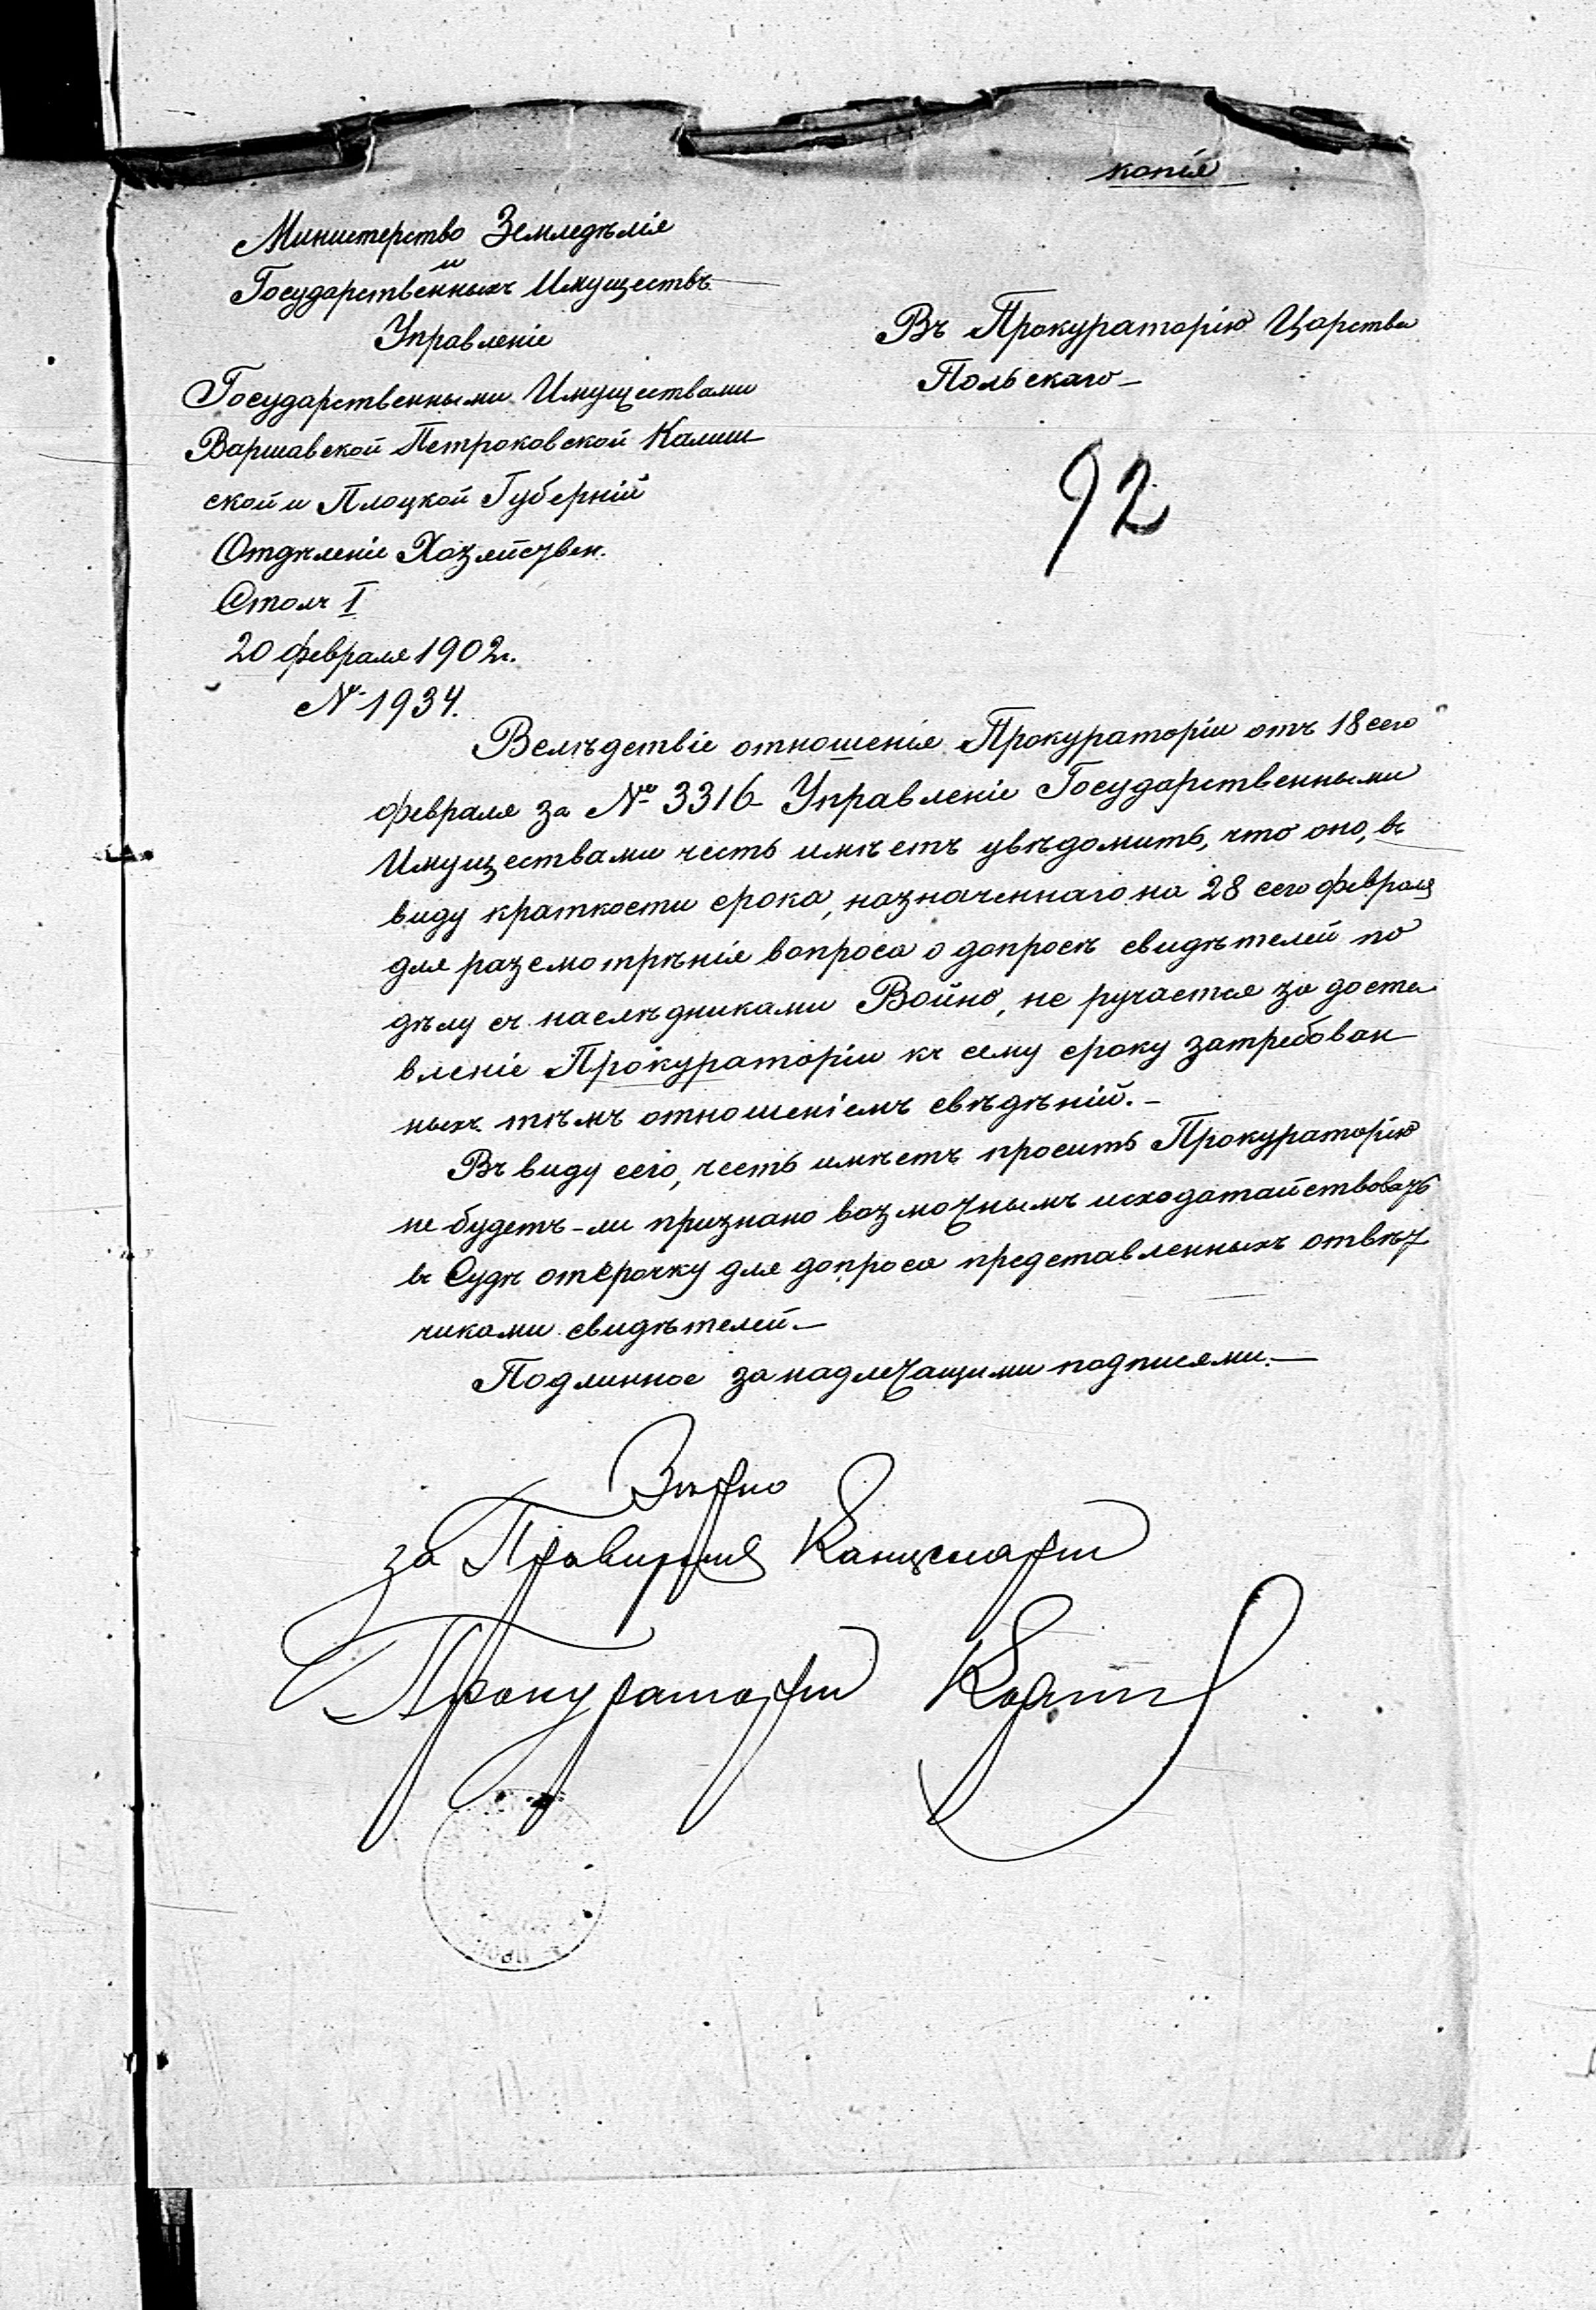 копія
Министерство Земледѣлія
и
Государственныхъ Имуществъ
Управленіе
Государственными Имуществами
Варшавской Петроковской Калиш
ской и Плоцкой Губерній
Отдѣленіе Хозяйствен.
Столъ I
20 февраля 1902 г.
№ 1934.
Въ Прокураторію Царства
Польскаго
92
Вслѣдствіе отношенія Прокураторіи отъ 18 сего
февраля за № 3316 Управленіе Государственными
Имуществами честь имѣетъ увѣдомить, что оно, въ
виду краткости срока, назначеннаго на 28 сего февраля
для разсмотрѣнія вопроса о допросѣ свидѣтелей по
дѣлу съ наслѣдниками Войно, не ручается за доста
вленіе Прокураторіи къ сему сроку затребован
ныхъ тѣмъ отношеніемъ свѣдѣній.
Въ виду сего, честь имѣетъ просить Прокураторію
не будетъ-ли признано возможнымъ исходатайствовать
въ Судѣ отсрочку для допроса представленныхъ отвѣт
чиками свидѣтелей
Подлинное за надлежащими подписями.
Вѣрно
за Правителя Канцеляріи
Прокураторіи